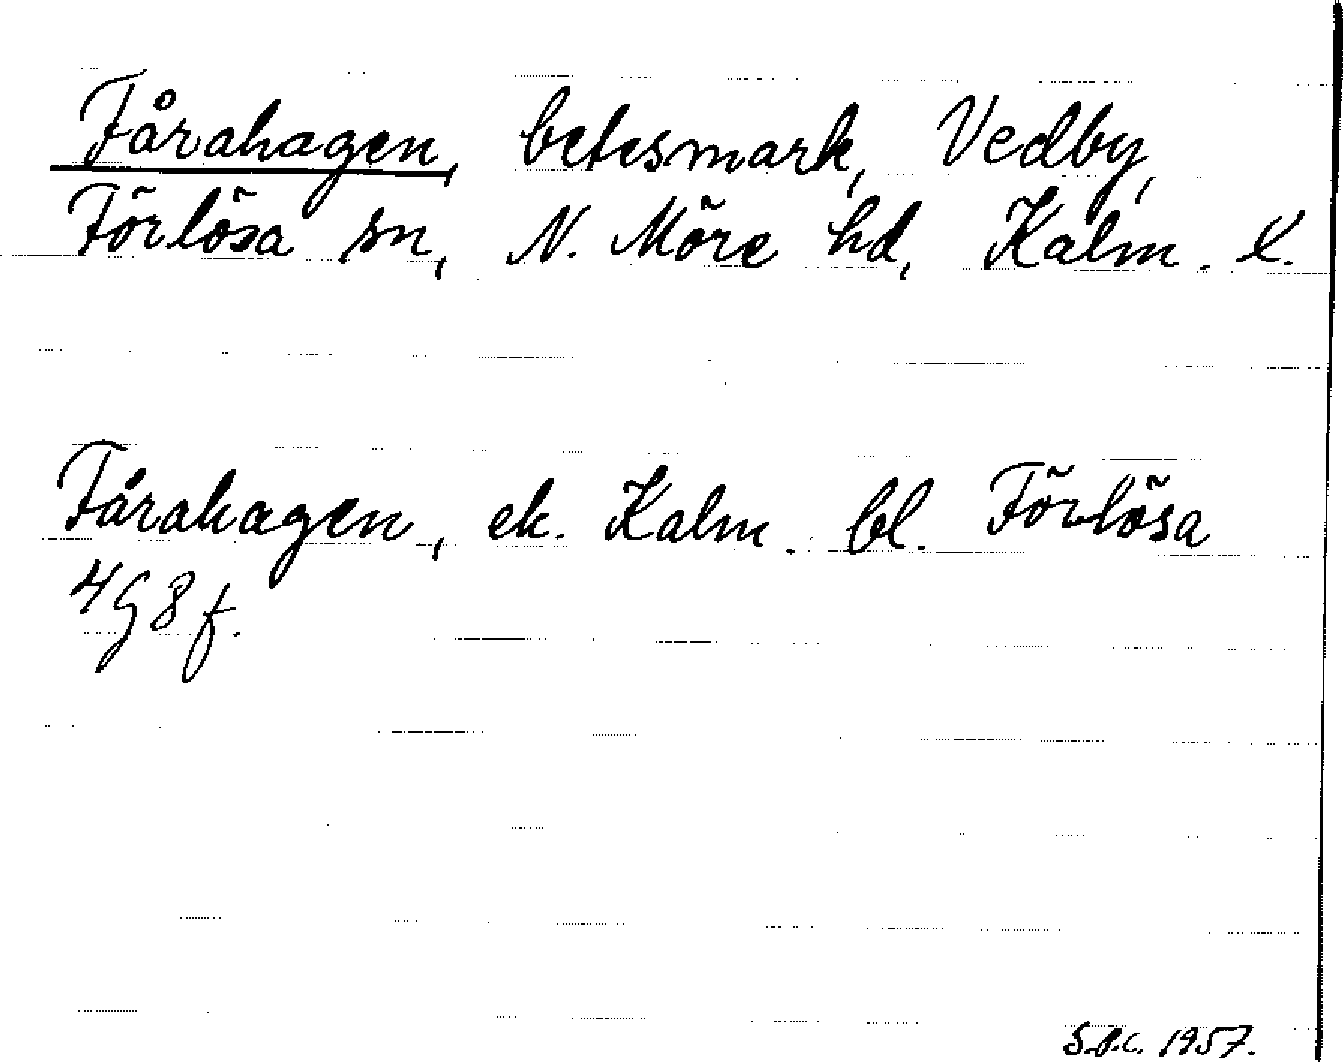 Fårahagen, betesmark, Vedby,
Förlösa sn, N. Möre hd, Kalm. l.
Fårahagen, ek. Kalm. bl. Förlösa
4G8f.
S.P.C. 1957.